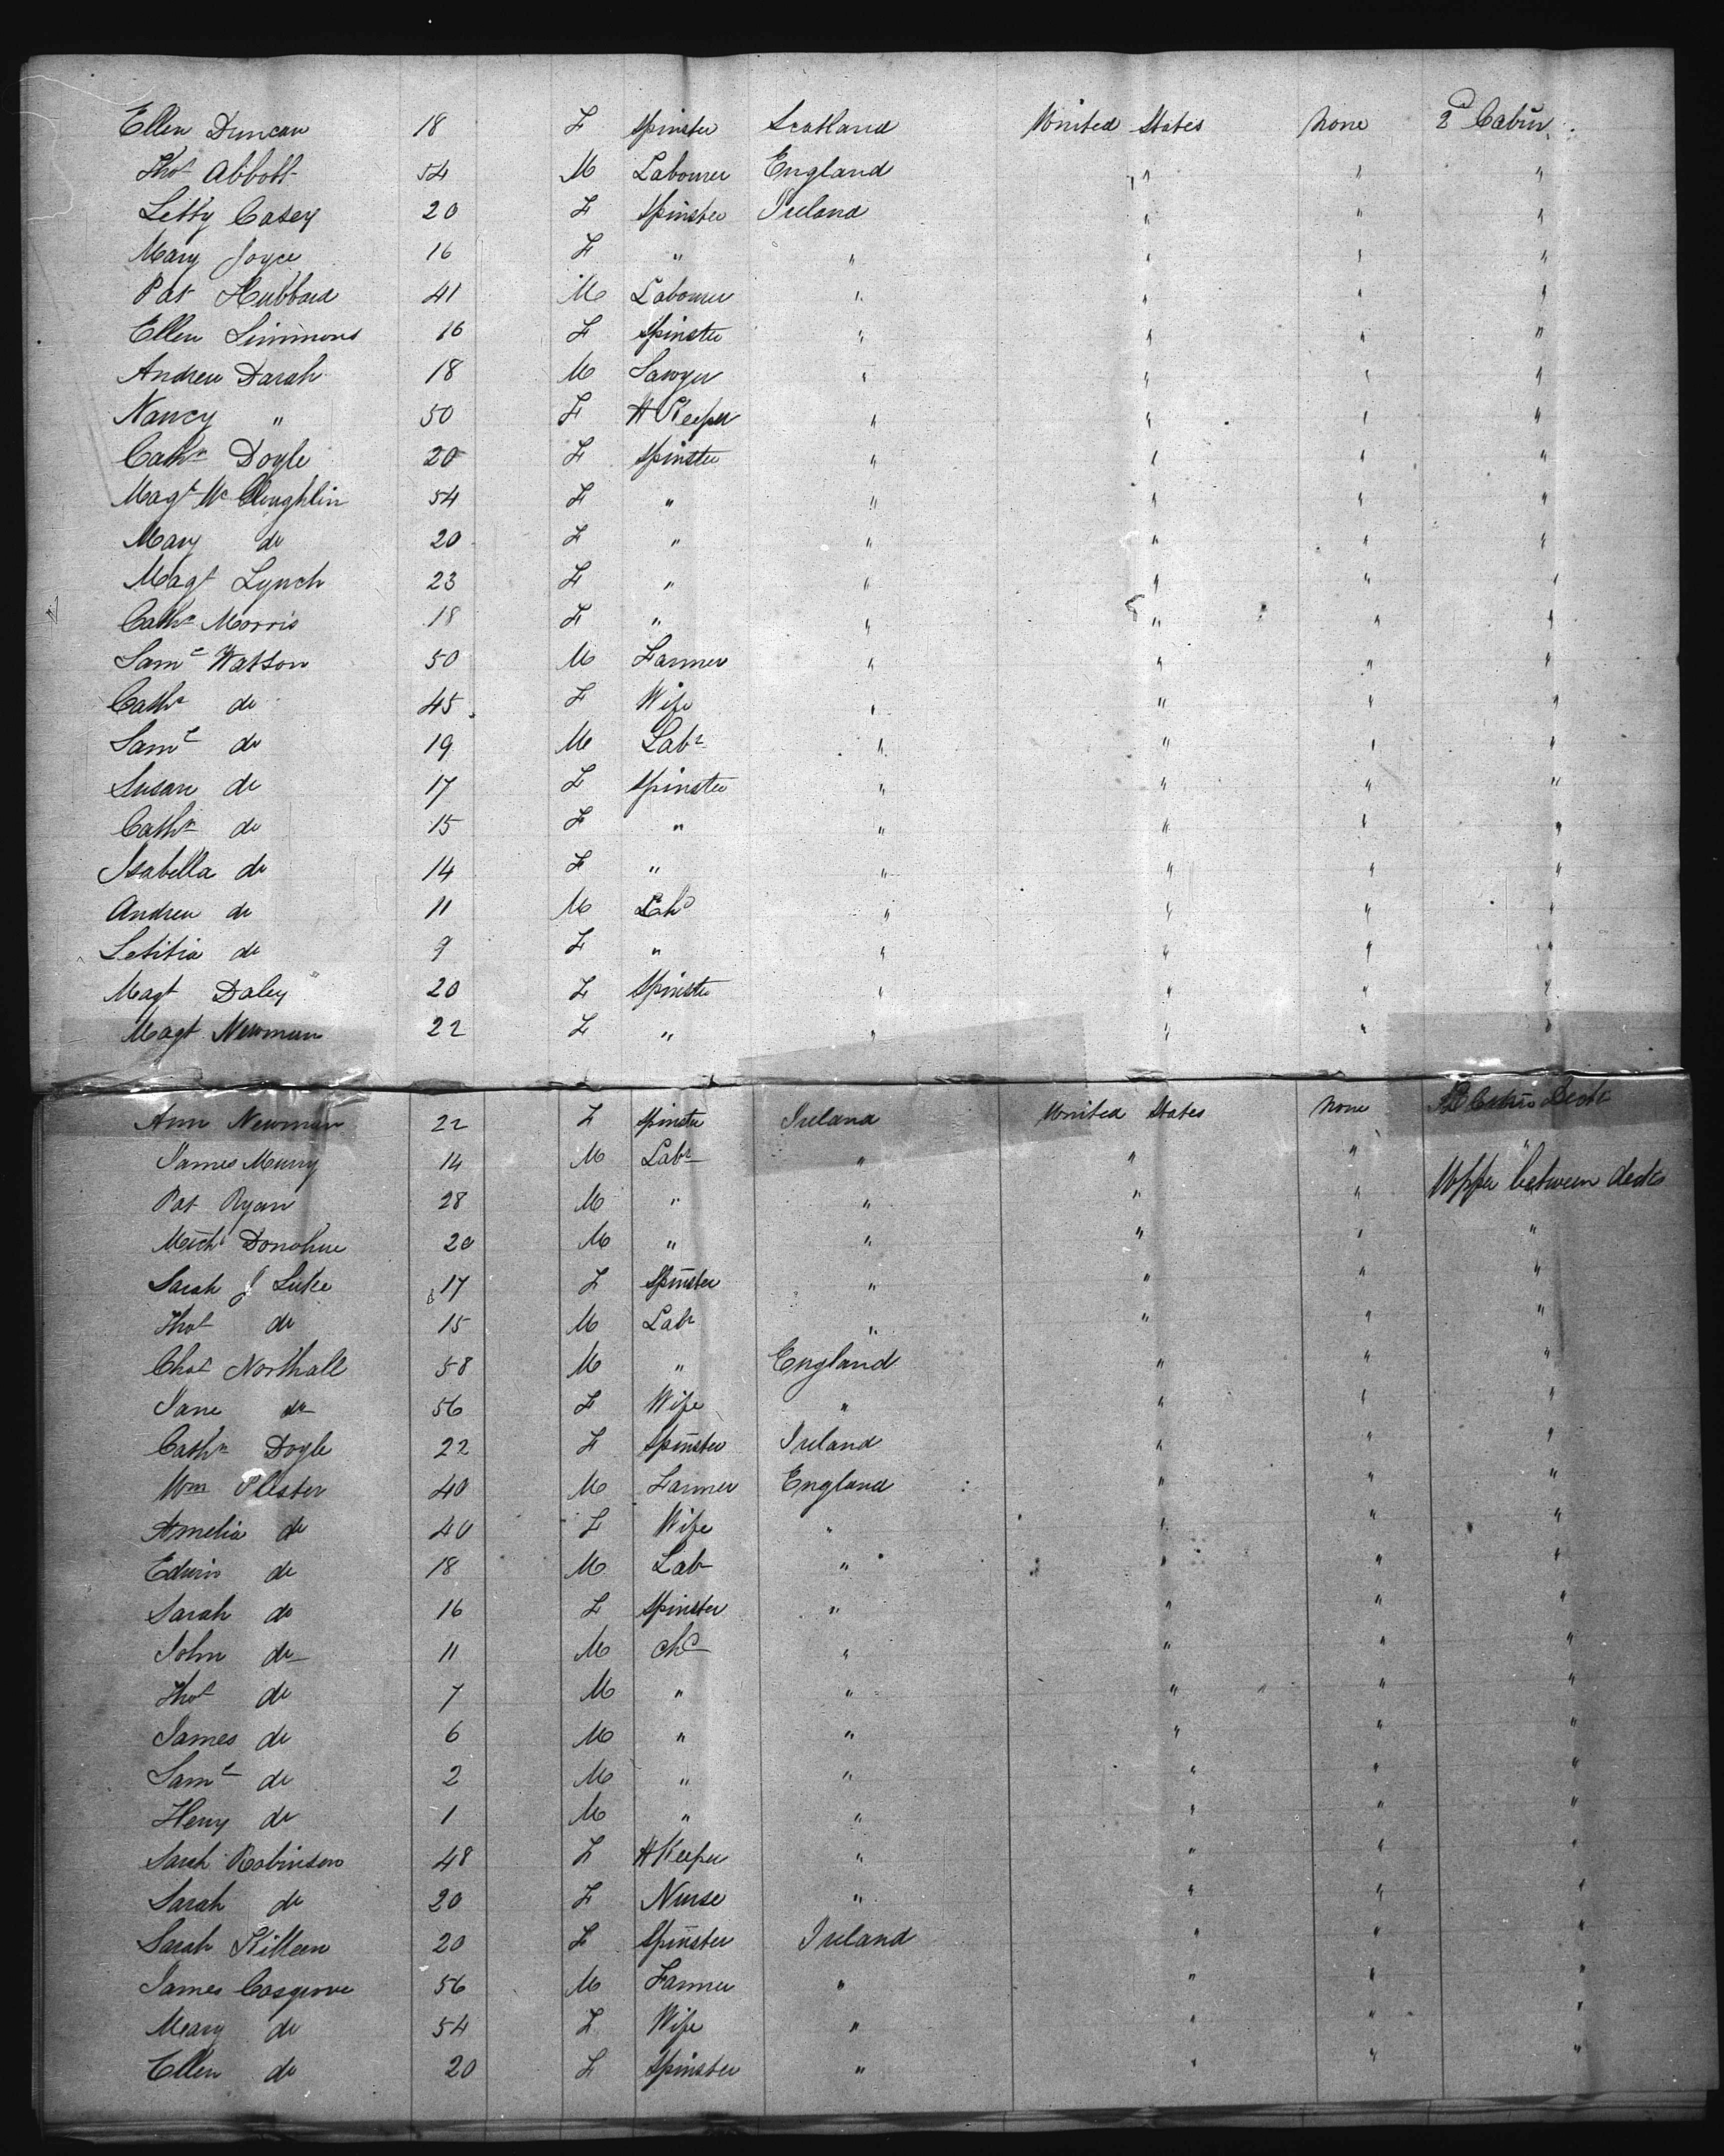 Ellen Duncan 18 F Spinster Scotland United States None 2d Cabin
Thos Abbott 54 M Labourer England " " "
Letty Casey 20 F Spinster Ireland " " "
Mary Joyce 16 F " " " " "
Pat Hubbard 41 M Labourer " " " "
Ellen Simmons 16 F Spinster " " " "
Andrew Darah 18 M Sawyer " " " "
Nancy " 50 F H Keeper " " " "
Cathn Doyle 20 F Spinster " " " "
Magt McCloughlin 54 F " " " " "
Mary do 20 F " " " " "
Magt Lynch 23 F " " " " "
Cathn Morris 18 F " " " " "
Saml Watson 50 M Farmer " " " "
Cathn do 45 F Wife " " " "
Saml do 19 M Labr " " " "
Susan do 17 F Spinster " " " "
Cathn do 15 F " " " " "
Isabella do 14 F " " " " "
Andrew do 11 M Chd " " " "
Letitia do 9 F " " " " "
Magt Daley 20 F Spinster " " " "
Magt Newman 22 F " " " " "
Ann Newman 22 F Spinster Ireland United States None Decks
James Murry 14 M Labr " " " "
Pat Ryan 28 M " " " " Upper between decks
Michl Donohue 20 M " " " " "
Sarah J Luke 17 F Spinster " " " "
Thos do 15 M Labr " " " "
Chas Northall 58 M " England " " "
Jane do 56 F Wife " " " "
Cathn Doyle 22 F Spinster Ireland " " "
Wm Plester 40 M Farmer England " " "
Amelia do 40 F Wife " " " "
Edwin do 18 M Labr " " " "
Sarah do 16 F Spinster " " " "
John do 11 M Chd " " " "
Thos do 7 M " " " " "
James do 6 M " " " " "
Saml do 2 M " " " " "
Henry do 1 M " " " " "
Sarah Robinson 48 F H Keeper " " " "
Sarah do 20 F Nurse " " " "
Sarah Killeen 20 F Spinster Ireland " " "
James Cosgrove 56 M Farmer " " " "
Mary do 54 F Wife " " " "
Ellen do 20 F Spinster " " " "